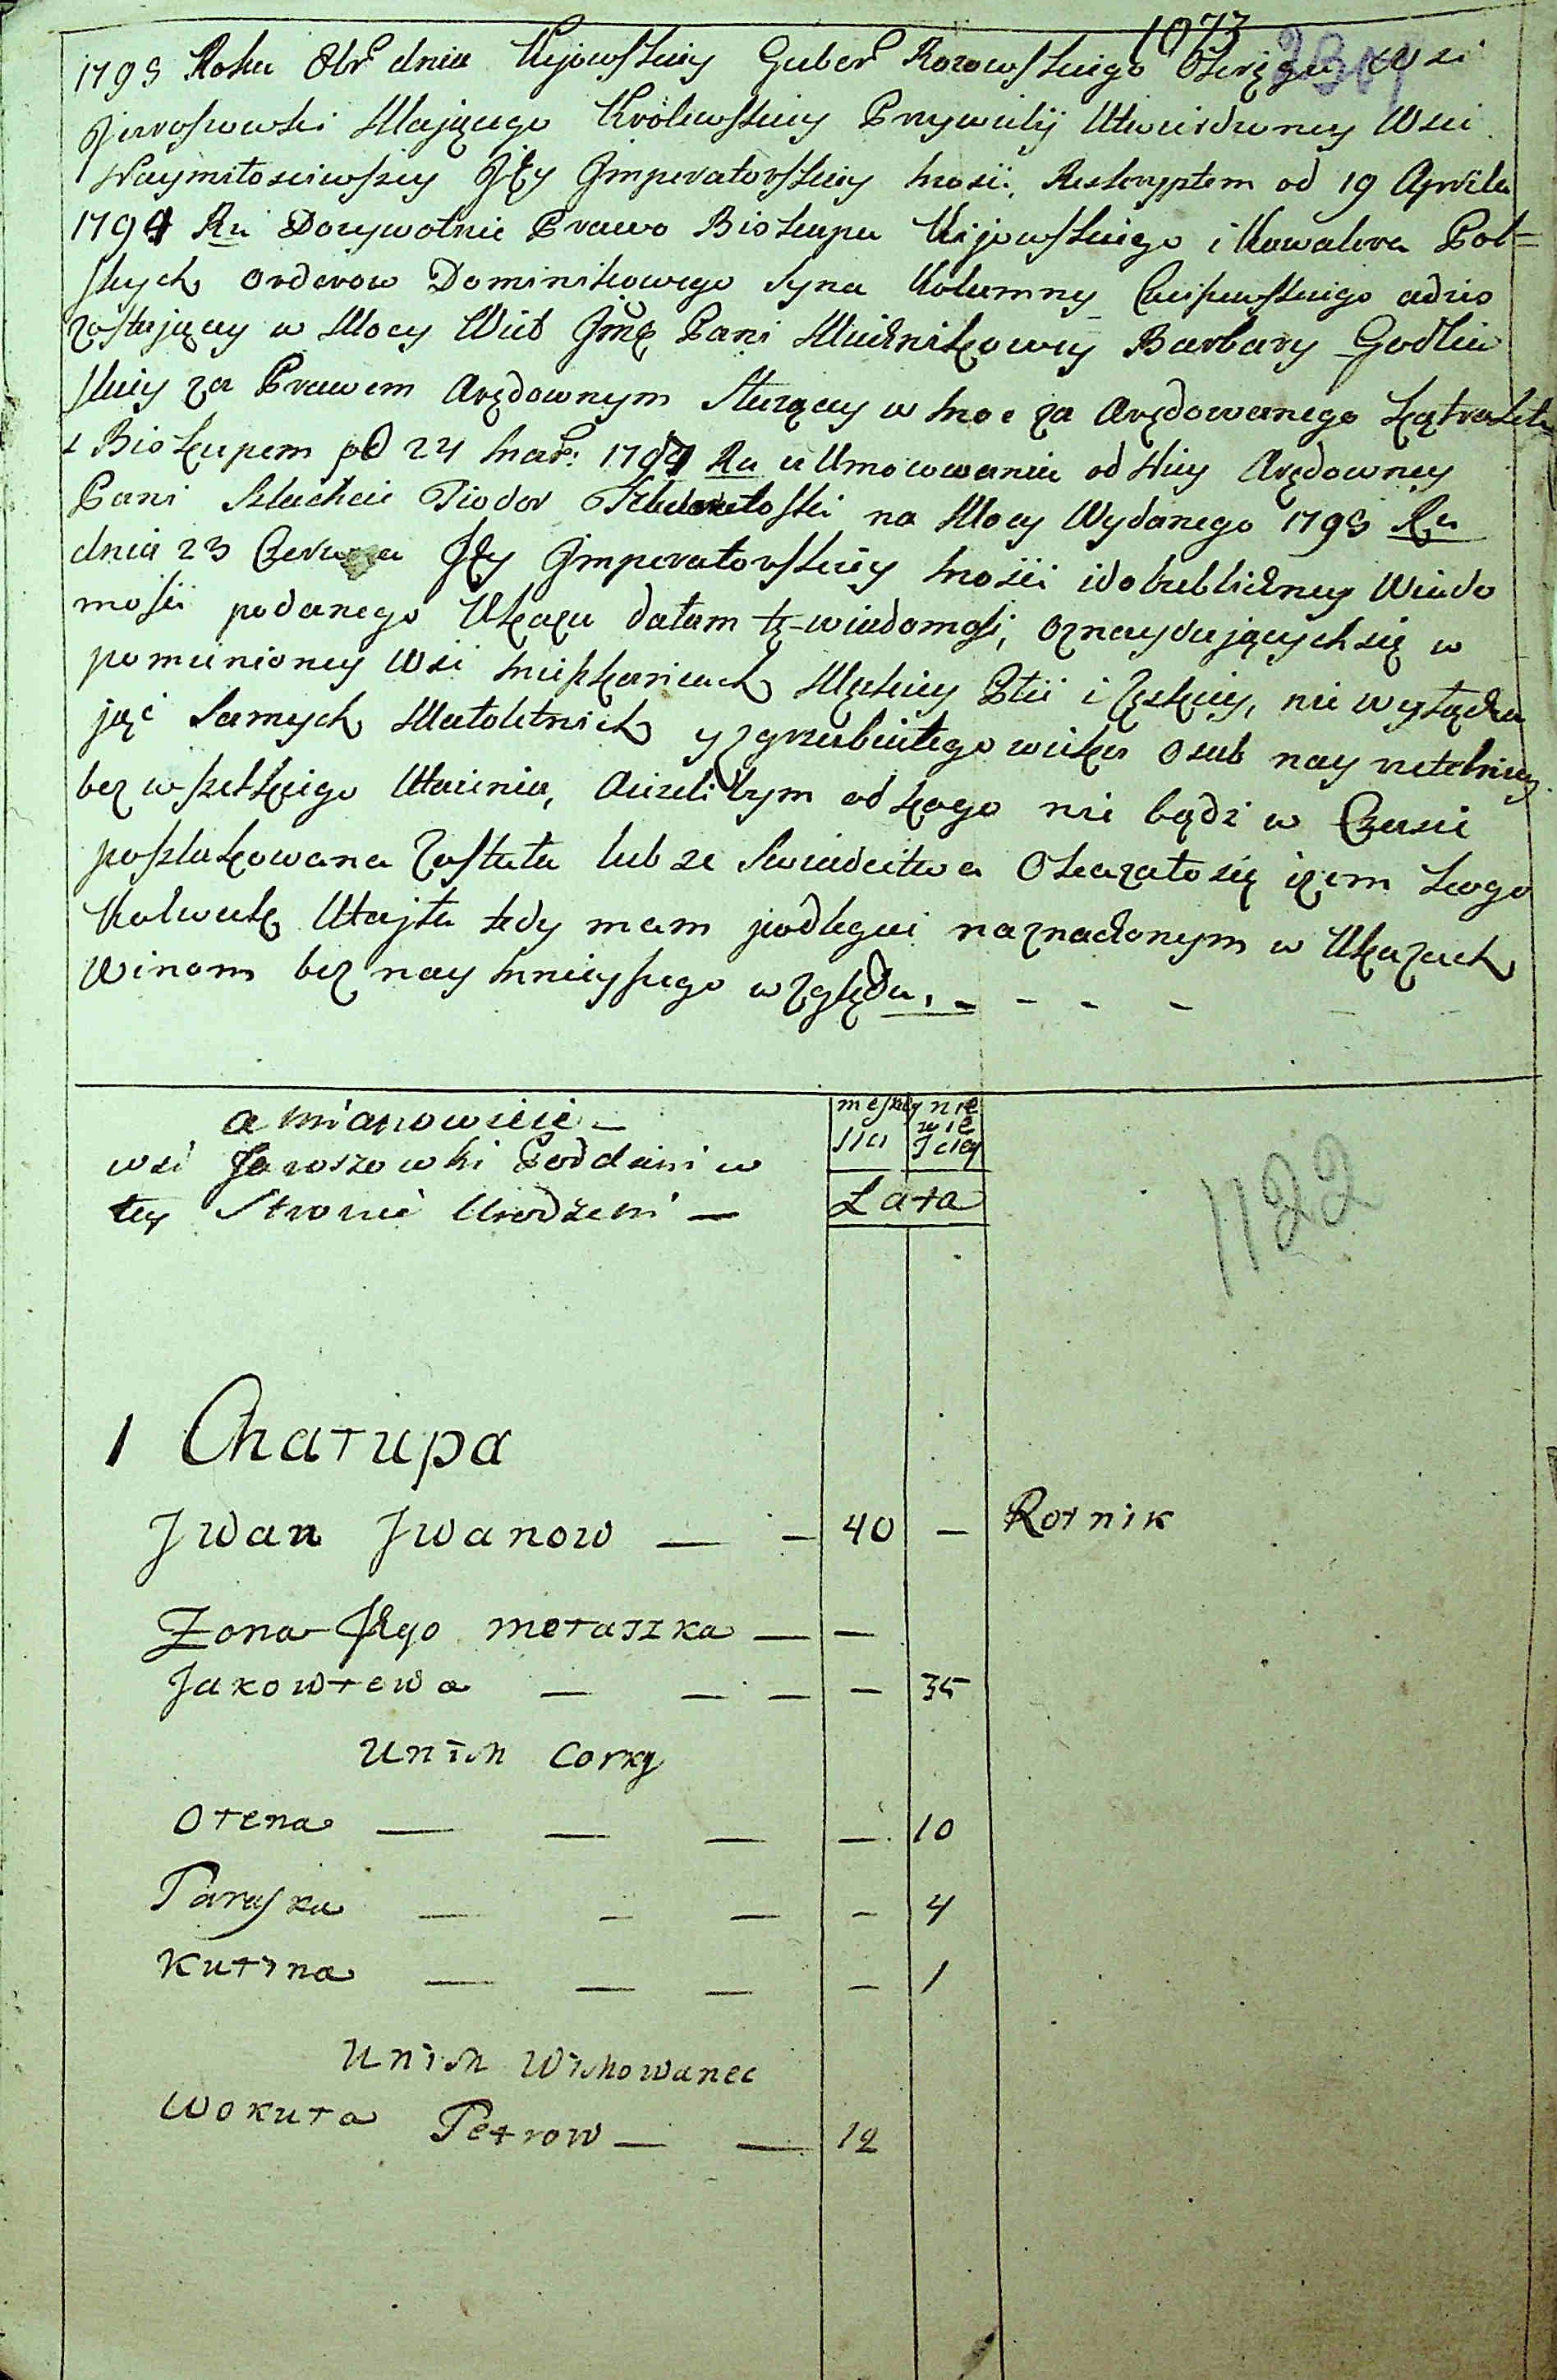 1073
1795 Roku 8br dnia Kijowskiey Guber Okręgu Wsi
Jaroszowki Mającego Krolewskiey Przywiliy Utwierdzoney Wsi
Naymiłosciwszey Jey Jmperatorskiey mosii, Reskryptem od 19 Aprila
1794 Ru Dozywotnie Prawo Biskupa Kijowskiego i Kawalera Pol=
skych Orderow Dominikowego Syna Kolumny
zostający w Mocy Jmę Pani Miecznikowey Barbary
skiey za Prawem Arędownym Służący w moc za Arędowanego Kątraktu
z Biskupem pod 24 mar: 1794 Ru a Umocowania od Niey Arędowney
Pani Szlachcic Fiodor na Mocy Wydanego 1795 Ru
dnia 23 Czerwca Jey Jmperatorskiey mosii i do Publiczney Wiado
mosii podanego Ukazu dałam tę wiadomosi, oznaydujących się w
pomienioney Wsi mieszkancach Męskiey Płii i Żęskiey, nie wyłącza
jąc Samych Małoletnich y zgrzubiałego wieku Osub nay rzetelniey
bez wszelkiego Utaienia, Aieżelibym od kogo nie bądz w Czasie
poszlakowana Została lub ze Swiadectwa Okazało się iżem kogo
Kolwiek Utajła tedy mam podlegac naznaczonym w Ukazach
Winom bez nay mnieyszego względu. - - - -
a mianowicie -
wsi Jaroszowki Poddani w
tey Stronie Urodzeni -
męskey nie
wie
sciey
Lata
1122
1 Chałupa
Jwan Jwanow — - 40 - Rolnik
Zona Jego Mełaszka — —
Jakowlewa — — — — 35
Unich Corky
Olena — — — — 10
Paraska — — — — 4
Kulina — — — — 1
Unich Wichowanec
Wokuła Petrow — — 12